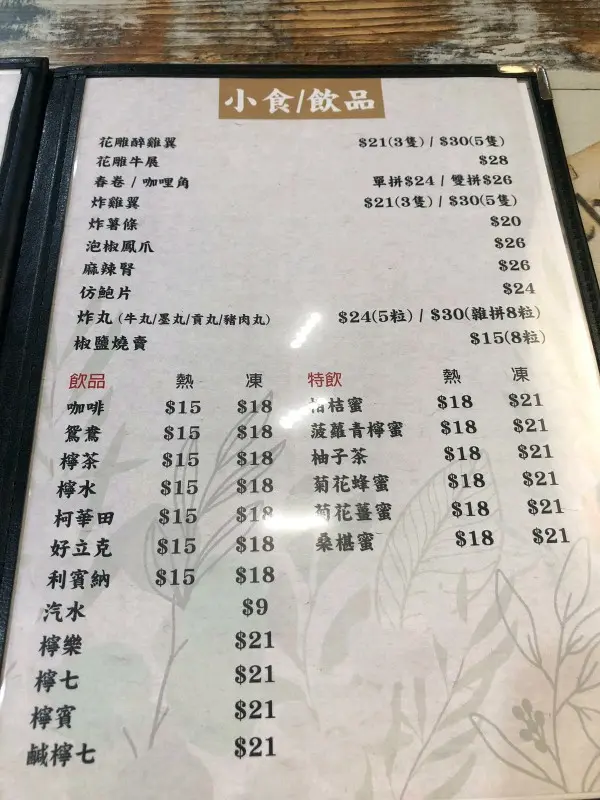 小食/飲品
花雕醉雞翼 $21(3隻) / $30(5隻)
花雕牛展 $28
春卷 / 咖哩角 單拼$24 / 雙拼$26
炸雞翼 $21(3隻) / $30(5隻)
炸薯條 $20
泡椒鳳爪 $26
麻辣腎 $26
仿鮑片 $24
炸丸 (牛丸/墨丸/貢丸/豬肉丸) $24(5粒) / $30(雜拼8粒)
椒鹽燒賣 $15(8粒)
飲品 熱 凍
咖啡 $15 $18
鴛鴦 $15 $18
檸茶 $15 $18
檸水 $15 $18
柯華田 $15 $18
好立克 $15 $18
利賓納 $15 $18
汽水 $9
檸樂 $21
檸七 $21
檸賓 $21
鹹檸七 $21
特飲 熱 凍
桔蜜 $18 $21
菠蘿青檸蜜 $18 $21
柚子茶 $18 $21
菊花蜂蜜 $18 $21
菊花薑蜜 $18 $21
桑椹蜜 $18 $21